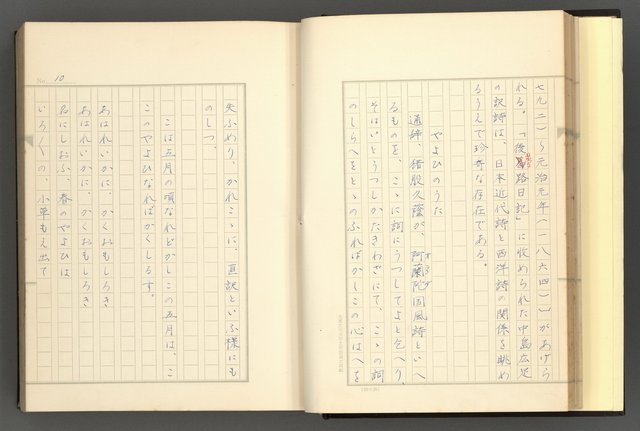 七九二)~元治元年(一八六四))があげら
れる。「後路日記」に收められた中島広足
の訳詩は、日本近代詩と西洋詩の関係を眺め
るうえで珍奇な存在である。
やよひのうた
通辞、猪股久蔭が、阿蘭陀国風詩といへ
オランダ
るものを、こゝに詞にうつしてよと乞へり、
そはいとうつしがたきわざにて、こゝの詞
のしらべをとゝのふればかしこの心はへを
No. 10
失ふめり、かれこゝに、直訳といふ様にも
のしつ、
こは五月の頃なれどかしこの五月は、こ
このやよひなればかくしるす。
あはれいかに、かくおもしろき
あはれいかに、かくおもしろき
名にしおふ、春のやよひは
いろくの、小草もえ出て